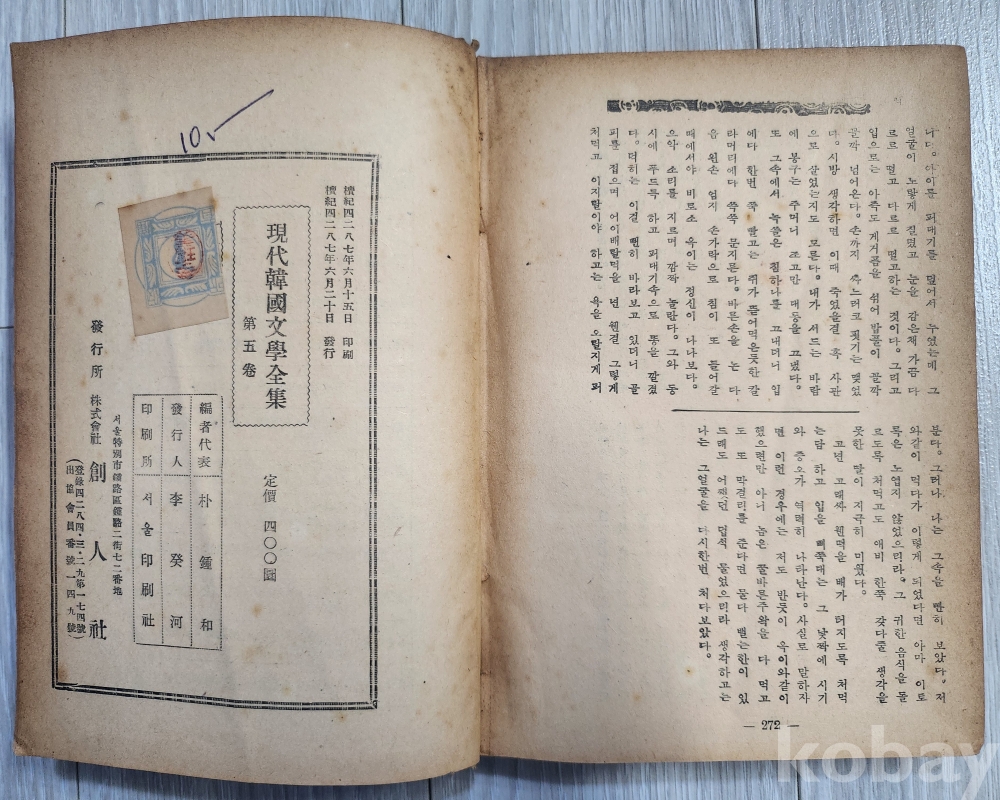 나다. 아이를 퍼대기를 덮어서 누였는데 그
얼굴이 노랗게 질렸고 눈을 감은채 가끔 다
르르 떨고 다르르 떨고하는 것이다. 그리고
입으로는 아즉도 게거품을 섞어 밥물이 꼴깍
꼴깍 넘어온다. 손까지 축느러고 횟기는 멪었
다. 시방 생각하면 이때 죽었을걸 혹 사관
으로 살었는지도 모른다. 내가 서드는 바람
에 봉구는 주머니 조고만 대통을 고냈다.
또 그속에서 녹쓸은 침하나를 고내더니 입
에다 한번 쪽 빨고는 쥐가 뜯어먹은듯한 칼
라머리에다 쓱쓱 문지른다. 바른손을 논 다
음 왼손 엄지 손가락으로 침이 또 들어갈
때에서야 비로소 옥이는 정신이 나나보다.
으악 소리를 지르며 깜짝 놀란다. 그와 동
시에 푸드득 하고 퍼대기속으로 똥을 깔겼
다. 덕히는 이걸 뻔히 바라보고 있더니 골
피를 집으며 어이배랄먹을 년 웬걸 그렇게
처먹고 이지랄이야 하고는 욕을 오랄지게 퍼
분다. 그러나 나는 그속을 빤히 보았다. 저
와같이 먹다가 이렇게 되었다면 아마 이로
록은 노엽지 않었으리라. 그 귀한 음식을 돌
르도록 처먹고도 애비 한쪽 갖다줄 생각을
못한 딸이 지극히 미웠다.
고년 고래싸, 웬떡을 배가 터지도록 처먹
는담 하고 입을 삐쭉대는 그 낯짝에 시기
와 증오가 역력히 나타난다. 사실로 말하자
면 이런 경우에는 저도 반듯이 옥이와같이
했으련만 아니 놈은 꿀바른주왁을 다 먹고
도 또 막걸리를 준다면 물다 뱉는한이 있
드래도 어쨌던 덥석 물었으리라 생각하고는
나는 그얼굴을 다시한번 처다보았다.
— 272 —
檀紀四二八七年六月十五日 印刷
檀紀四二八七年六月二十日 發行
現代韓國文學全集
第五卷
定價 四〇〇圜
編者代表 朴鍾和
發行人 李癸河
印刷所 서울印刷社
서울特別市鍾路區鍾路二街七二番地
發行所 株式會社 創人社
(登錄四二八四·三·二九第一七四號
出協會員番號一四九號)
10
kobay